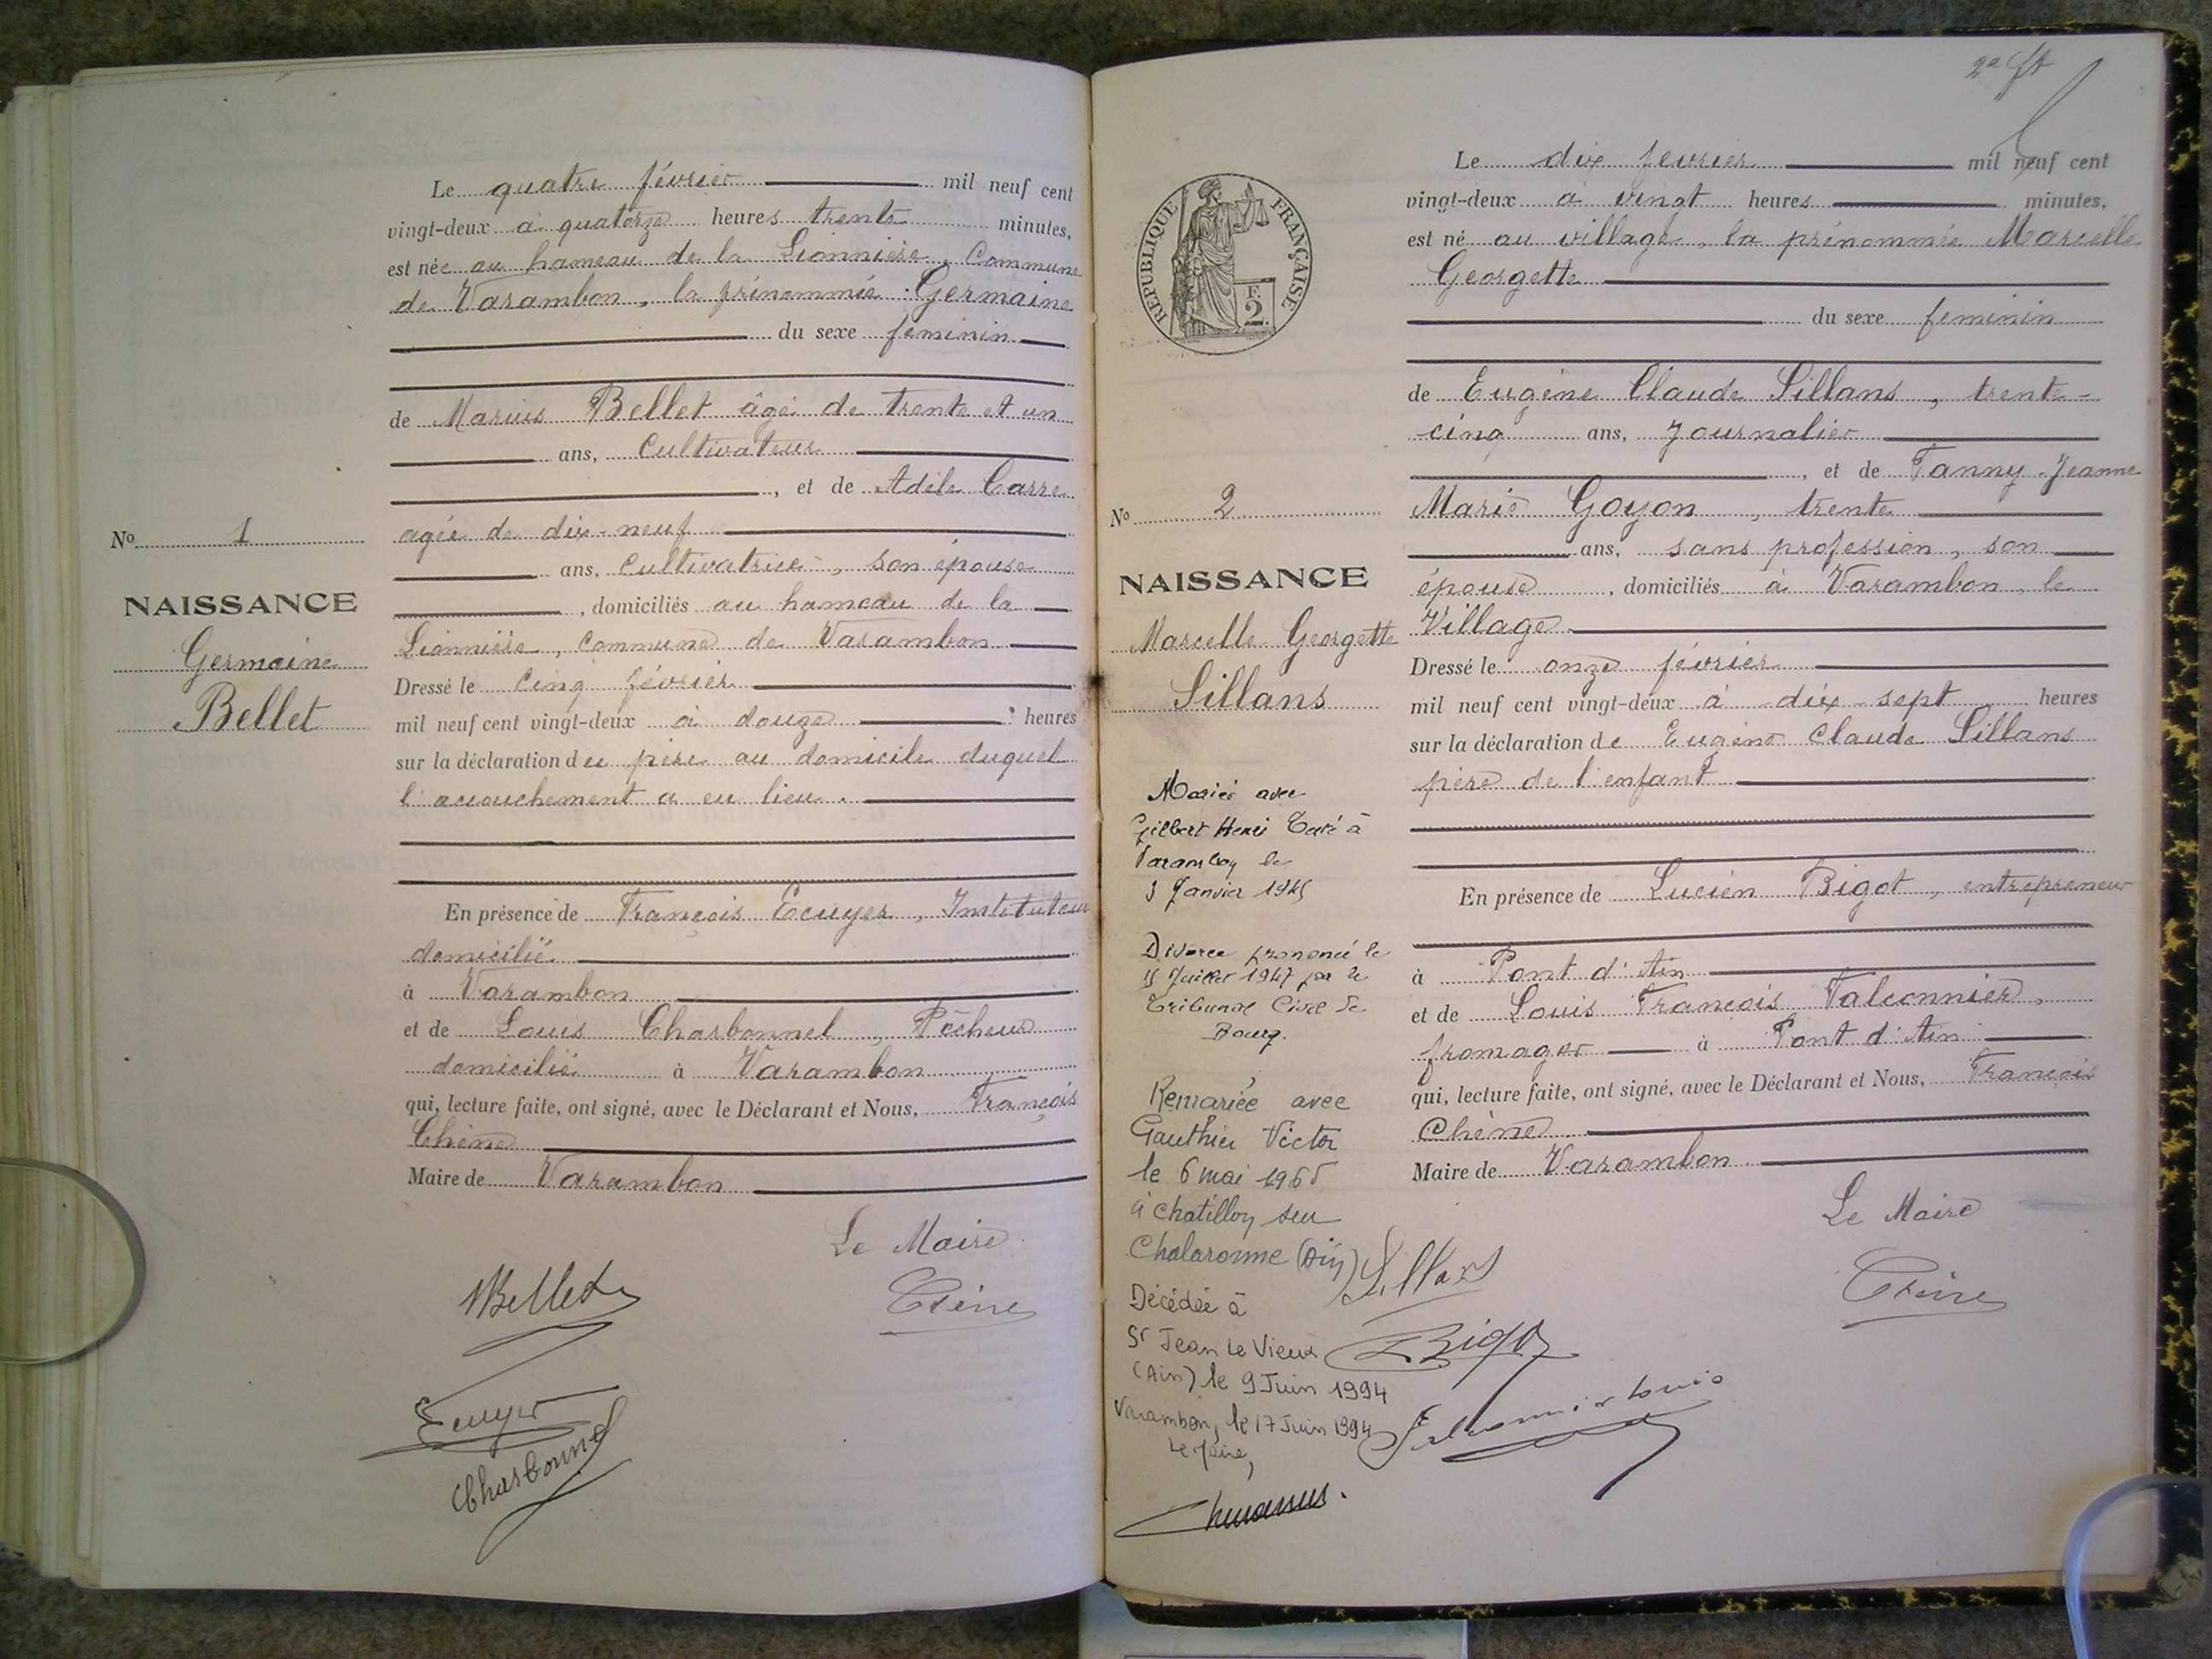 Le quatre février mil neuf cent
vingt-deux à quatorze heures trente minutes,
est née au hameau de la Lionnière, Commune
de Varambon, la prénommée Germaine
du sexe féminin
de Marius Bellet âgé de trente et un
ans, Cultivateur
, et de Adèle Carre
agée de dix-neuf
ans, Cultivatrice, son épouse
, domiciliés au hameau de la
Lionnière, Commune de Varambon
Dressé le Cinq février
mil neuf cent vingt-deux à douze heures
sur la déclaration du père au domicile duquel
l'accouchement a eu lieu.
En présence de François Ecuyer, Instituteur
domicilié
à Varambon
et de Louis Charbonnel, Pêcheur
domicilié à Varambon
qui, lecture faite, ont signé, avec le Déclarant et Nous, François
Chêne
Maire de Varambon
Le Maire
MBellet
Chêne
Ecuyer
Charbonnel
No 1
NAISSANCE
Germaine
Bellet
2e
RÉPUBLIQUE FRANÇAISE
F.
2.
Le dix fevrier mil neuf cent
vingt-deux à vingt heures minutes,
est né au village, la prénommée Marcelle
Georgette
du sexe feminin
de Eugène Claude Sillans, trente-
cinq ans, Journalier
, et de Fanny-Jeanne
Marie Goyon, trente
ans, sans profession, son
épouse, domiciliés à Varambon, le
Village
Dressé le onze février
mil neuf cent vingt-deux à dix-sept heures
sur la déclaration de Eugène Claude Sillans
père de l'enfant
En présence de Lucien Bigot, entrepreneur
à Pont d'Ain
et de Louis François Falconnier,
fromager à Pont d'Ain
qui, lecture faite, ont signé, avec le Déclarant et Nous, François
Chêne
Maire de Varambon
Le Maire
Sillans
Chêne
Bigot
Falconnier Louis
No 2
NAISSANCE
Marcelle Georgette
Sillans
Mariée avec
Gilbert Henri à
Varambon le
Janvier 1945
Divorce prononcé le
15 Juillet 1947 par le
Tribunal Civil de
Bourg.
Remariée avec
Gauthier Victor
le 6 mai 1965
à Chatillon sur
Chalaronne (Ain)
Décédée à
St Jean Le Vieux
(Ain) le 9 Juin 1994
Varambon, le 17 Juin 1994
Le Maire,